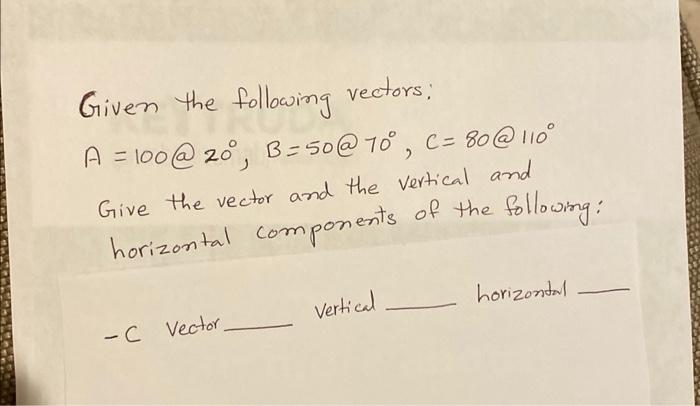 Given the following vectors:
A = 100 @ 20°, B = 50 @ 70°, C = 80 @ 110°
Give the vector and the vertical and
horizontal components of the following:
-C Vector ____ Vertical ____ horizontal ____